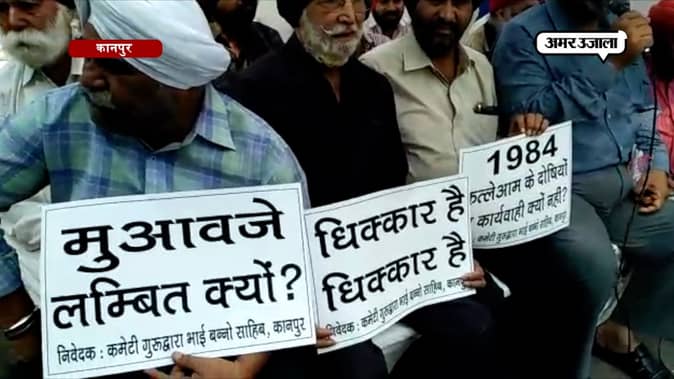 कानपुर
अमर उजाला
मुआवजे
लम्बित क्यों?
निवेदक : कमेटी गुरूद्वारा भाई बन्नो साहिब, कानपुर
धिक्कार है
धिक्कार है
निवेदक : कमेटी गुरूद्वारा भाई बन्नो साहिब, कानपुर
1984
कत्लेआम के दोषियों
कार्यवाही क्यों नहीं?
कमेटी गुरूद्वारा भाई बन्नो साहिब, कानपुर